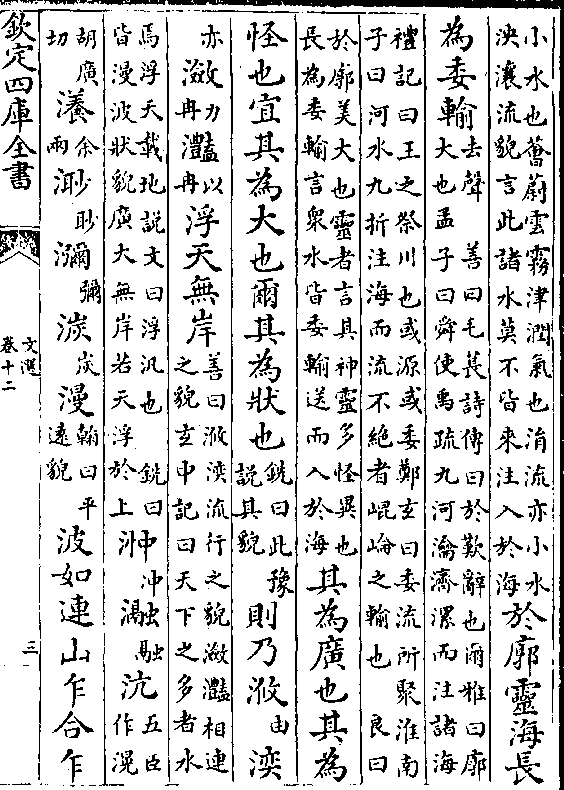 小水也薈蔚雲霧津潤氣也涓流亦小水
泱瀼流貌言此諸水莫不皆來注入於海
於廓靈海長
為委輸
去聲 善曰毛萇詩傳曰於歎辭也爾雅曰廓
大也孟子曰舜使禹疏九河瀹濟漯而注諸海
禮記曰王之祭川也或源或委鄭玄曰委流所聚淮南
子曰河水九折注海而流不絶者崐崘之輸也 良曰
於廓美大也靈者言其神靈多怪異也
長為委輸言衆水皆委輸送而入於海
其為廣也其為
怪也宜其為大也爾其為狀也
銑曰此 豫
説其貌
則乃浟由湙
亦瀲力冉灩以冉浮天無岸
善曰浟湙流行之貌瀲灩相連
之貌玄中記曰天下之多者水
焉浮天載地説文曰浮汎也 銑曰
皆漫波狀貌廣大無岸若天浮於上
浺冲瀜融沆五臣作滉
胡廣切瀁余兩渺眇瀰彌湠炭漫
翰曰平
遠貌
波如連山乍合乍
欽定四庫全書
文選
卷十二
三